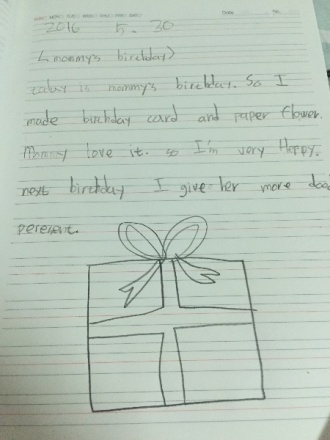 2016 5. 30
<mommy's birthday>
today is mommy's birthday. So I
made birthday card and paper flower.
Mommy love it. so I'm very Happy.
next birthday I give her more
peresent.